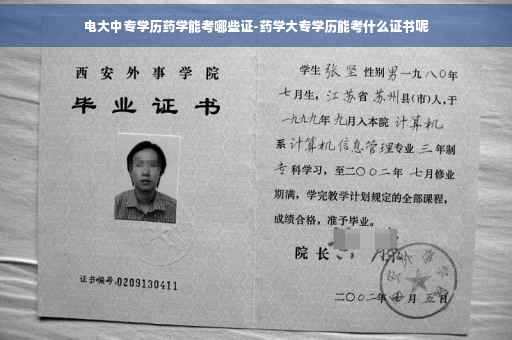 电大中专学历药学能考哪些证-药学大专学历能考什么证书呢
西安外事学院
毕业证书
证书编号:0209130411
学生 张坚 性别 男 一九八〇年
七月生，江苏省 苏州县(市)人，于
一九九九年 九月入本院 计算机
系 计算机信息管理专业 三 年制
专 科学习，至二〇〇二年 七月修业
期满，学完教学计划规定的全部课程，
成绩合格，准予毕业。
院长
二〇〇二年 月 五日